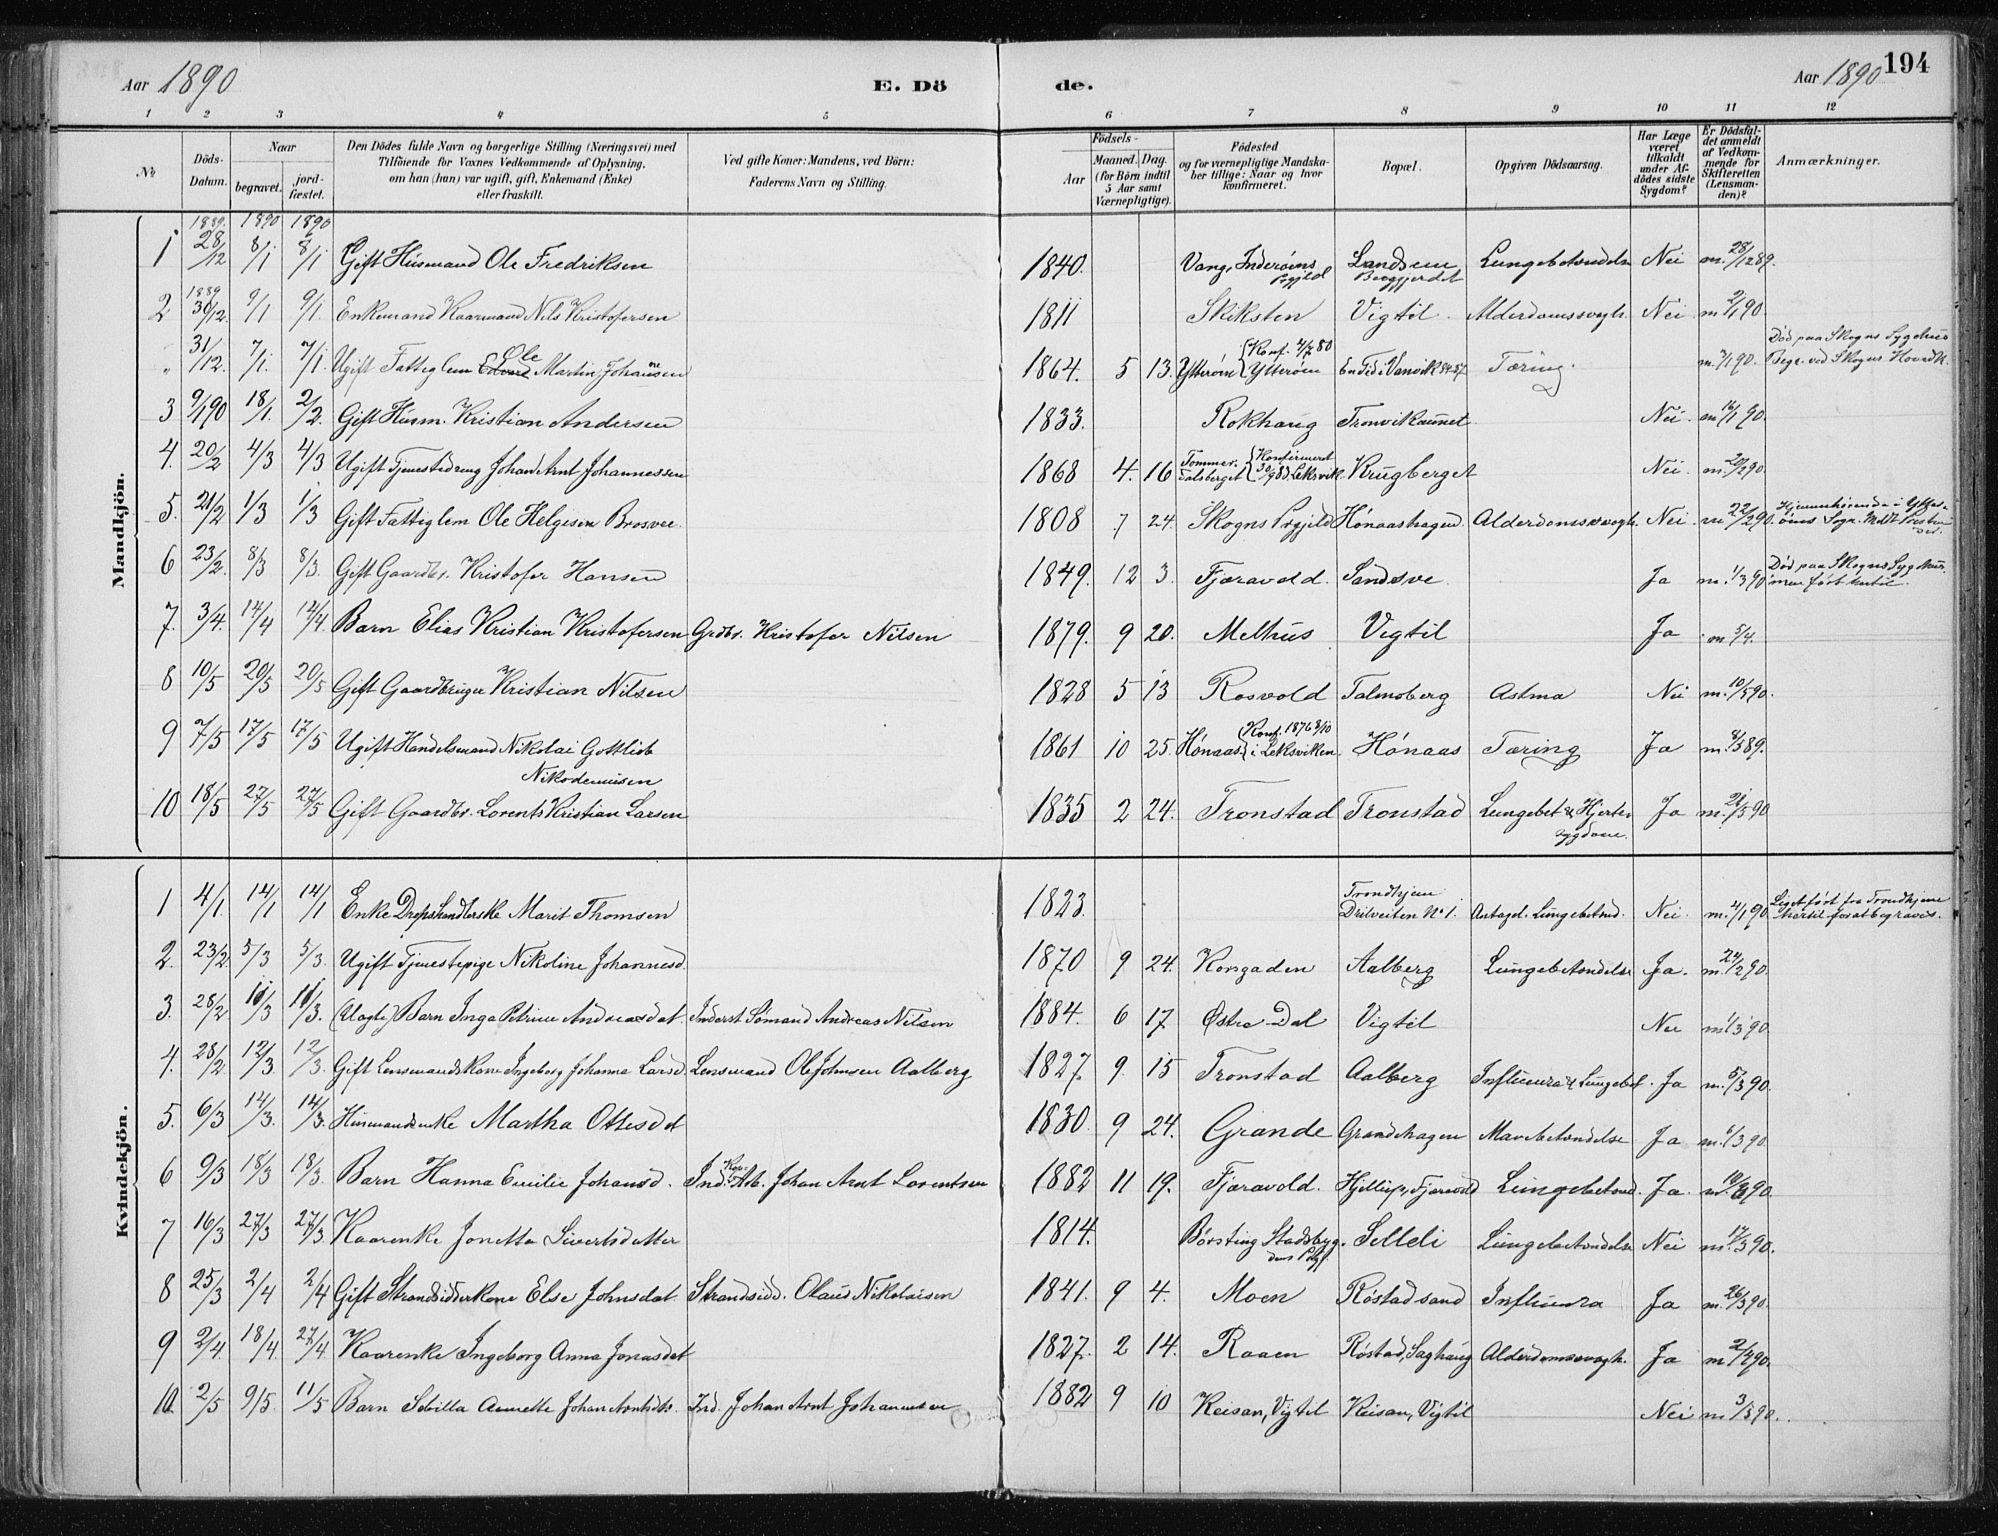 Aar 1890 E. Dö de. Aar 1890 194
1 2 3 4 5 6 7 8 9 10 11 12
No Döds-Datum. Naar begravet. jord-fæstet. Den Dödes fulde Navn og borgerlige Stilling (Næringsvei) med Tilföiende for Voxnes Vedkommende af Oplysning, om han (hun) var ugift, gift, Enkemand (Enke) eller fraskilt. Ved gifte Koner: Mandens, ved Börn: Faderens Navn og Stilling. Födsels- Aar Maaned. Dag. (for Börn indtil 5 Aar samt Værnepligtige). Födested og for værnepligtige Mandska-ber tillige: Naar og hvor konfirmeret. Bopæl. Opgiven Dödsaarsag. Har Læge været tilkaldt under Af-dödes sidste Sygdom? Er Dödsfal-det anmeldt af Vedkom-mende for Skifteretten (Lensman-den)? Anmærkninger.
Mandkjön.
1889. 1890 1890
1 28/12 8/1 8/1 Gift Husmand Ole Fredriksen 1840. Vang, Inderøens Prgjeld Landsem Bergjerdet Lungebetændelse Nei m. 28/12 89.
2 1889 30/12. 9/1 9/1. Enkemand Kaarmand Nils Kristofersen 1811 Skiksten Vigtil. Alderdomssvagh. Nei m 2/1 90.
" 31/12. 7/1. 7/1 Ugift Fattiglem Edvard Ole Martin Johansen 1864. 5 13. Ytterøen {Konf. 4/7 80 Ytterøen En Tid i Vanvik 84-87. Tæring. m. 7/1 90. Død paa Skogns Sygehus Begr. ved Skogns Hovedk.
3 9/1 90 18/1 2/2. Gift Husm. Kristian Andersen 1833. Rokhaug Tronvikaunet Nei. m 16/1 90.
4. 20/2 4/3 4/3 Ugift Tjenestedreng Johan Arnt Johannessen 1868 4. 16 Tommerdalsberget {Konfirmeret Leksvik. Krugberget Nei. m. 20/2 90.
5. 21/2 1/3 1/3 Gift Fattiglem Ole Helgesen Brosve. 1808 7 24. Skogns Prgjeld Hønaashagen Alderdomssvagh. Nei. m 22/2 90. Hjemmehørende i Ytterøens Sogn.
6 23/2. 8/3 8/3. Gift Gaardbr. Kristofer Hansen 1849. 12 3. Fjæravold. Sandsve Ja m. 1/3 90 Død paa Skogns Sygehus, men ført hertil.
7. 3/4. 14/4 14/4. Barn Elias Kristian Kristofersen Grdbr. Kristofer Nilsen 1879. 9 20. Melhus Vigtil Ja m 5/4.
8 10/5 20/5 20/5 Gift Gaardbruger Kristian Nilsen 1828 5 13 Rosvold Talmoberg Astma Nei m. 10/5 90.
9 7/5 17/5 17/5 Ugift Handelsmand Nikolai Gottlieb Nikodemusen 1861 10 25. Hønaas {Konf. 1876 8/10 i Leksviken. Hønaas Tæring Ja m. 8/5 89.
10 18/5 27/5 27/5 Gift Gaardbr. Lorents Kristian Larsen 1835 2 24. Tronstad Tronstad Lungebet & Hjertesygdom. Ja m. 21/5 90
Kvindekjön.
1 4/1. 14/1 14/1 Enke Dropshandlerske Marit Thomsen 1823. Trondhjem Drilveiten No 1. Antagel. Lungebetænd. Nei. m. 4/1 90 Liget ført fra Trondhjem hertil for at begraves.
2. 23/2 5/3 5/3. Ugift Tjenestepige Nikoline Johannesd. 1870 9 24. Korsgaden Aalberg Lungebetændelse Ja. m. 24/2 90.
3. 28/2 11/3 11/3. (Uægte) Barn Inga Petrine Andreasdat. Inderst Sømand Andreas Nilsen 1884. 6 17 Østre Dal Vigtil Nei m 1/3 90.
4. 28/2. 12/3. 12/3. Gift Lensmandskone Ingeborg Johanna Larsd. Lensmand Ole Johnsen Aalberg 1827. 9. 15 Tronstad Aalberg Influensa & Lungebet. Ja m. 5/3 90.
5. 6/3 14/3. 14/3. Husmandsenke Martha Ottesdt 1830. 9 24. Grande Grandehagen Mavebetændelse Ja m. 6/3 90.
6 9/3 18/3 18/3. Barn Hanna Emilie Johansd. Ind. Arb. Johan Arnt Lorentsen 1882 11 19. Fjæravold. Hjellup, Fjæravold Lungebetænd. Ja. m. 10/3 90.
7 16/3 27/3 27/3. Kaarenke Jonetta Sivertsdatter 1814. Børsting Stadsbygdens Pgj. Selleli Lungebetændelse Nei m. 17/3 90.
8 25/3 2/4 2/4 Gift Strandsidderkone Else Johnsdat. Strandsidd. Olaus Nikolaisen 1841. 9 4. Moen Røstadsand Influensa Ja m. 26/3 90.
9 2/4. 18/4. 27/4. Kaarenke Ingeborg Anna Jonasdat 1827. 2 14. Raaen Røstad, Saghaug Alderdomssvagh. Ja m 2/4 90.
10. 2/5 9/5. 11/5 Barn Sebilla Annette Johan Arntsdt. Ind. Johan Arnt Johannesen 1882 9 10 Keisan, Vigtil Keisan, Vigtil Nei m 3/5 90.